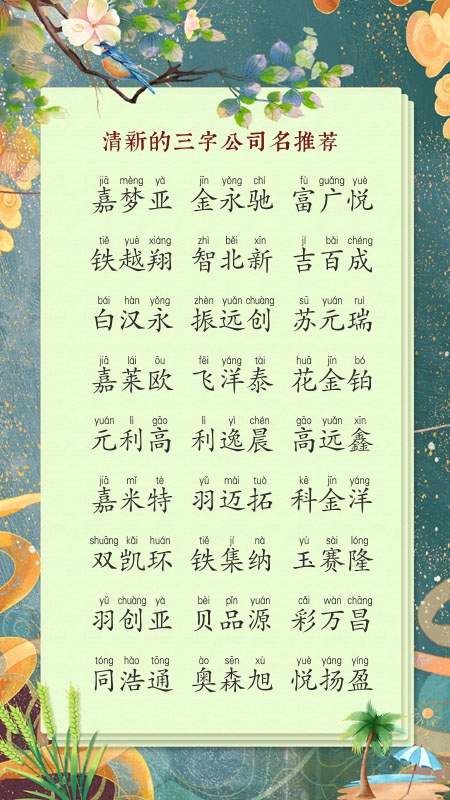 清新的三字公司名推荐
jiā mèng yà jīn yǒng chí fù guǎng yuè
嘉梦亚 金永驰 富广悦
tiě yuè xiáng zhì běi xīn jí bǎi chéng
铁越翔 智北新 吉百成
bái hàn yǒng zhèn yuǎn chuàng sū yuán ruì
白汉永 振远创 苏元瑞
jiā lái ōu fēi yáng tài huā jīn bó
嘉莱欧 飞洋泰 花金铂
yuán lì gāo lì yì chén gāo yuǎn xīn
元利高 利逸晨 高远鑫
jiā mǐ tè yǔ mài tuò kē jīn yáng
嘉米特 羽迈拓 科金洋
shuāng kǎi huán tiě jí nà yù sài lóng
双凯环 铁集纳 玉赛隆
yǔ chuàng yà bèi pǐn yuán cǎi wàn chāng
羽创亚 贝品源 彩万昌
tóng hào tōng ào sēn xù yuè yáng yíng
同浩通 奥森旭 悦扬盈